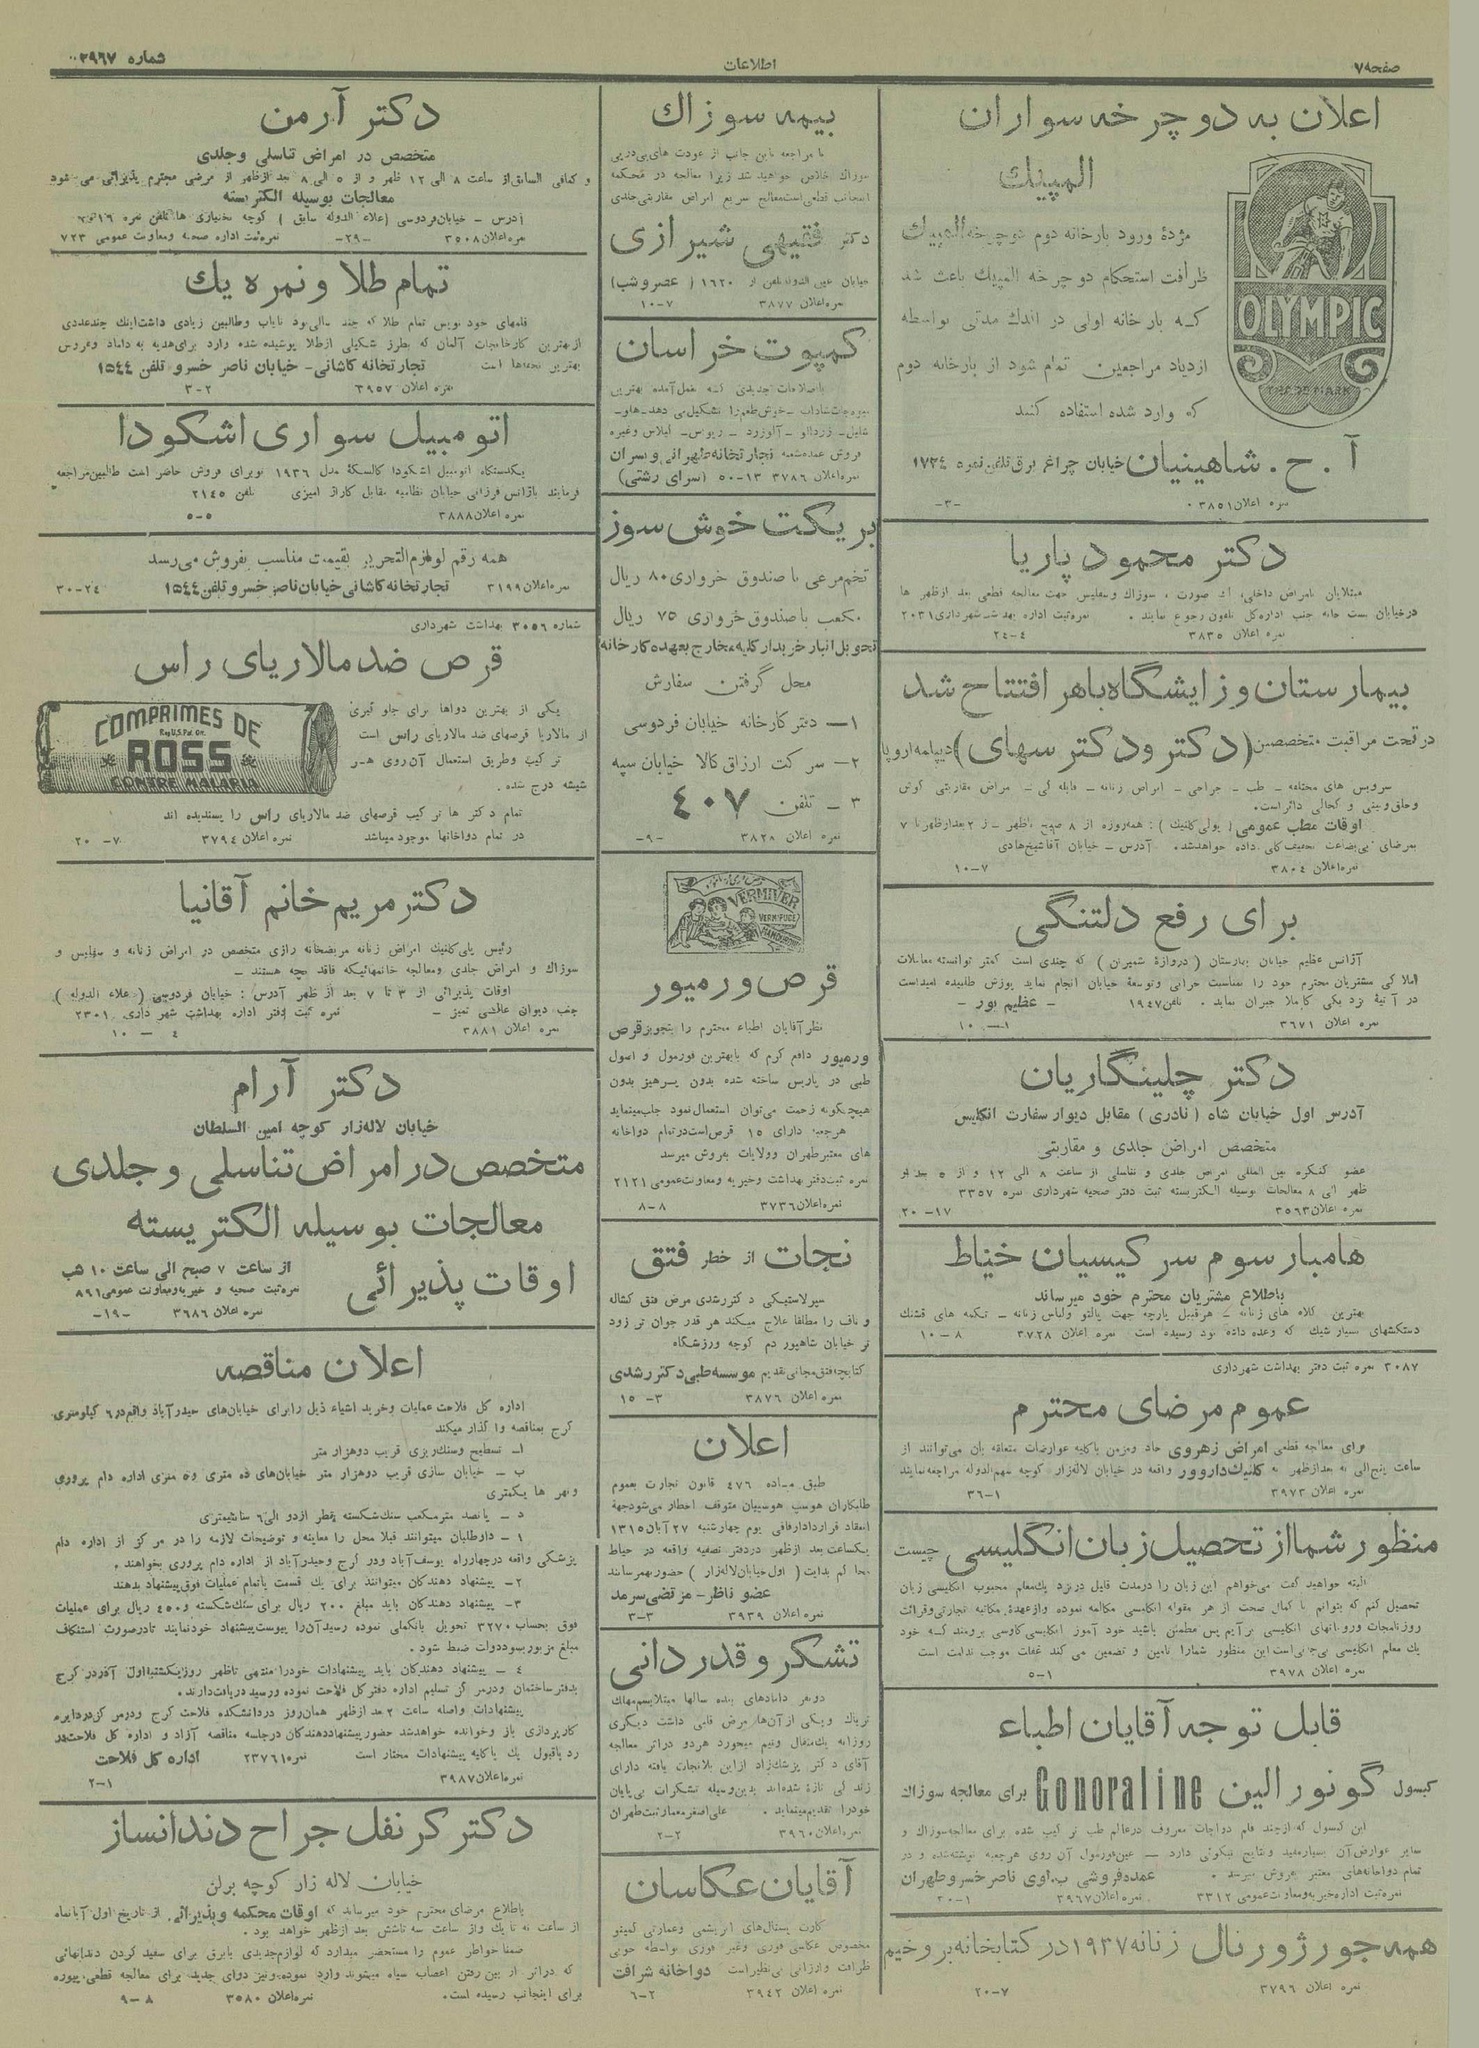 صفحه ۷
اطلاعات
شماره ۲۹۶۷
اعلان به دوچرخه سواران
المپیك
OLYMPIC
TRADE MARK
مژدهٔ ورود بارخانه دوم دوچرخه المپیك
ظرافت استحکام دوچرخه المپیك باعث شد
که بارخانه اولی در اندك مدتی بواسطه
ازدیاد مراجعین تمام شود از بارخانه دوم
که وارد شده استفاده کنید
آ. ح. شاهینیان خیابان چراغ برق تلفن نمره ۱۷۲۴
نمره اعلان ۳۸۵۱
-۳-
دکتر محمود پاریا
نمره اعلان ۳۸۳۵
۲۴-۴
بیمارستان و زایشگاه باهر افتتاح شد
در تحت مراقبت متخصصین (دکتر و دکترسهای) دیپلمه اروپا
سرویس های مختلفه - طب - جراحی - امراض زنانه - قابله گی - امراض مقاربتی گوش
وحلق و بینی و کحالی دائر است.
اوقات مطب عمومی (پولی کلنیك): همه روزه از ۸ صبح تا ظهر - از ۲ بعدازظهر تا ۷
بمرضای بی بضاعت تخفیف کلی داده خواهد شد. آدرس - خیابان آقا شیخ هادی
نمره اعلان ۳۸۰۴
۱۰-۷
برای رفع دلتنگی
آژانس عظیم خیابان بهارستان (دروازه شمیران) که چندی است کمتر توانسته معاملات
املاکی مشتریان محترم خود را بمناسبت خرابی و توسعهٔ خیابان انجام نماید پوزش طلبیده امیداست
در آتیهٔ نزدیکی کاملا جبران نماید. تلفن ۱۹۴۷ - عظیم پور -
نمره اعلان ۳۶۷۱
۱۰-۱
دکتر چلینگاریان
آدرس اول خیابان شاه (نادری) مقابل دیوار سفارت انگلیس
متخصص امراض جلدی و مقاربتی
عضو کنگره بین المللی امراض جلدی و تناسلی از ساعت ۸ الی ۱۲ و از ۵ بعد از
ظهر الی ۸ معالجات بوسیله الکتریسته ثبت دفتر صحیه شهرداری نمره ۳۳۵۷
نمره اعلان ۳۵۶۳
۲۰-۱۷
هامبارسوم سرکیسیان خیاط
باطلاع مشتریان محترم خود میرساند
بهترین کلاه های زنانه - هر قبیل پارچه جهت پالتو ولباس زنانه - تکمه های قشنك
دستکشهای بسیار شیك که وعده داده بود رسیده است نمره اعلان ۳۷۲۸
۱۰-۸
۲۰۸۷ نمره ثبت دفتر بهداشت شهرداری
عموم مرضای محترم
برای معالجه قطعی امراض زهروی حاد ومزمن باکلیه عوارضات متعلقه بآن می توانند از
ساعت پنج الی به بعدازظهر به کلنیك داروور واقعه در خیابان لاله زار کوچه مهم الدوله مراجعه نمایند
نمره اعلان ۳۹۷۳
۳۶-۱
منظور شما از تحصیل زبان انگلیسی چیست
نمره اعلان ۳۹۷۸
۵-۱
قابل توجه آقایان اطباء
کپسول گونورالین Gonoraline برای معالجه سوزاك
این کپسول که از چند قلم دواجات معروف درعالم طب ترکیب شده برای معالجه سوزاك و
سایر عوارض آن بسیار مفید ونتایج نیکوئی دارد - عین فورمول آن روی هر جعبه نوشته شده و در
تمام دواخانه های معتبر بفروش میرسد. عمده فروشی ب. اوی ناصر خسرو طهران
نمره ثبت اداره خیریه ومعاونت عمومی ۳۳۱۲ نمره اعلان ۳۹۶۷
۲۰-۱
همه جور ژورنال زنانه ۱۹۳۷ در کتابخانه بروخیم
نمره اعلان ۳۷۹۶
۲۰-۷
بیمه سوزاك
با مراجعه باین جانب از عودت های پی درپی
سوزاك خلاص خواهید شد زیرا معالجه در محکمه
اینجانب قطعی است معالج سریع امراض مقاربتی جلدی
دکتر فقیهی شیرازی
خیابان عین الدوله تلفن از ۱۶۲۰ (عصر وشب)
نمره اعلان ۳۸۷۷
۱۰-۷
کمپوت خراسان
فروش عمده شعبه تجارتخانه طهرانی و پسران
نمره اعلان ۳۷۸۶
۵۰-۱۳ (سرای رشتی)
بریکت خوش سوز
تخم مرغی با صندوق خرواری ۸۰ ریال
مکعب با صندوق خرواری ۷۵ ریال
تحویل انبار خریدار کلیه مخارج بعهده کارخانه
محل گرفتن سفارش
۱- دفتر کارخانه خیابان فردوسی
۲- شرکت ارزاق کالا خیابان سپه
۳- تلفن ۴۰۷
نمره اعلان ۳۸۲۸
-۹-
VERMIVER
VERMIFUGE
قرص ورمیور
نظر آقایان اطباء محترم را بتجویز قرص
ورمیور دافع کرم که با بهترین فورمول و اصول
طبی در پاریس ساخته شده بدون پرهیز بدون
هیچگونه زحمت می توان استعمال نمود جلب مینماید
هر جعبه دارای ۱۵ قرص است در تمام دواخانه
های معتبر طهران وولایات بفروش میرسد
نمره ثبت دفتر بهداشت وخیریه ومعاونت عمومی ۲۱۲۱
نمره اعلان ۳۷۳۶
۸-۸
نجات از خطر فتق
سپرلاستیکی دکتر رشدی مرض فتق کشاله
و ناف را مطلقا علاج میکند هر قدر جوان تر زود
تر خیابان شاهپور دم کوچه ورزشگاه
کتابچه فتق مجانی تقدیم موسسه طبی دکتر رشدی
نمره اعلان ۳۸۷۶
۱۵-۳
اعلان
طبق ماده ۴۷۶ قانون تجارت بعموم
طلبکاران هوسپ هوسپیان متوقف اخطار می شود جهة
انعقاد قرارداد ارفاقی یوم چهارشنبه ۲۷ آبان ۱۳۱۵
یکساعت بعد ازظهر دردفتر تصفیه واقعه در حیاط
محاکم بدایت (اول خیابان لاله زار) حضور بهمرسانند
عضو ناظر - مرتضی سرمد
نمره اعلان ۳۹۳۹
۳-۳
تشکر و قدردانی
دونفر دامادهای بنده سالها مبتلا بسم مهلك
تریاك ویکی از آن ها مرض قلبی داشت دیگری
روزانه یك مثقال ونیم میخورد هردو دراثر معالجه
آقای دکتر پزشك زاد از این بلا نجات یافته دارای
زندگی تازه شده اند بدین وسیله تشکرات بی پایان
خودرا تقدیم مینماید. علی اصغر معمار ثبت طهران
نمره اعلان ۳۹۶۰
۲-۲
آقایان عکاسان
کارت پستال های ابریشمی وعمارتی لمیتو
مخصوص عکاسی فوری وغیر فوری بواسطه خوبی
ظرافت وارزانی بی نظیر است دواخانه شرافت
نمره اعلان ۳۹۴۲
۶-۲
دکتر آرمن
متخصص در امراض تناسلی و جلدی
و کمافی السابق از ساعت ۸ الی ۱۲ ظهر و از ۵ الی ۸ بعد ازظهر از مرضی محترم پذیرائی می شود
معالجات بوسیله الکتریسته
نمره اعلان ۳۵۰۸
-۲۹-
نمره ثبت اداره صحیه ومعاونت عمومی ۷۲۳
تمام طلا و نمره یك
قلمهای خود نویس تمام طلا که چند سالی بود نایاب وطالبین زیادی داشت اینك چند عددی
از بهترین کارخانجات آلمان که بطرز شکیلی از طلا پوشیده شده وارد برای هدیه به داماد وعروس
بهترین تحفه ها است تجارتخانه کاشانی - خیابان ناصر خسرو تلفن ۱۵۴۴
نمره اعلان ۳۹۵۷
۳-۲
اتومبیل سواری اشکودا
یکدستگاه اتومبیل اشکودا کالسکهٔ مدل ۱۹۳۶ نو برای فروش حاضر است طالبین مراجعه
فرمایند باژانس فرزانی خیابان نظامیه مقابل گاراژ امیری تلفن ۲۱۴۵
نمره اعلان ۳۸۸۸
۵-۵
همه رقم لوازم التحریر بقیمت مناسب بفروش می رسد
نمره اعلان ۳۱۹۹ تجارتخانه کاشانی خیابان ناصر خسرو تلفن ۱۵۴۴
۳۰-۲۴
شماره ۳۰۵۶ بهداشت شهرداری
قرص ضد مالاریای راس
COMPRIMES DE
Reg U.S. Pat. Off.
ROSS
CONTRE MALARIA
یکی از بهترین دواها برای جلوگیری
از مالاریا قرصهای ضد مالاریای راس است
ترکیب وطریق استعمال آن روی هر
شیشه درج شده.
تمام دکترها ترکیب قرصهای ضد مالاریای راس را پسندیده اند
در تمام دواخانها موجود میباشد
نمره اعلان ۳۷۹۴
۲۰-۷
دکتر مریم خانم آقانیا
رئیس پلی کلنیك امراض زنانه مریضخانه رازی متخصص در امراض زنانه و سفلیس و
سوزاك و امراض جلدی ومعالجه خانمهائیکه فاقد بچه هستند -
اوقات پذیرائی از ۳ تا ۷ بعد از ظهر آدرس: خیابان فردوسی (علاء الدوله)
جنب دیوان عالی تمیز - نمره ثبت دفتر اداره بهداشت شهرداری ۲۳۰۱
نمره اعلان ۳۸۸۱
۱۰-۴
دکتر آرام
خیابان لاله زار کوچه امین السلطان
متخصص در امراض تناسلی و جلدی
معالجات بوسیله الکتریسته
اوقات پذیرائی
از ساعت ۷ صبح الی ساعت ۱۰ شب
نمره ثبت صحیه و خیریه ومعاونت عمومی ۸۹۱
نمره اعلان ۳۶۸۶
-۱۹-
اعلان مناقصه
اداره کل فلاحت عملیات وخرید اشیاء ذیل را برای خیابان های حیدرآباد واقع در ۶ کیلومتری
کرج بمناقصه واگذار میکند
ا- تسطیح وسنك ریزی قریب دوهزار متر
ب- خیابان سازی قریب دوهزار متر خیابان های ده متری و ۵ متری اداره دام پروری
ونهرها یکمتری
د- پانصد مترمکعب سنك شکسته بقطر از دو الی ۶ سانتیمتری
۱- داوطلبان میتوانند قبلا محل را معاینه و توضیحات لازمه را در مرکز از اداره دام
پزشکی واقعه درچهارراه یوسف آباد ودر کرج وحیدرآباد از اداره دام پروری بخواهند.
۲- پیشنهاد دهندگان میتوانند برای یك قسمت یا تمام عملیات فوق پیشنهاد بدهند
۳- پیشنهاد دهندگان باید مبلغ ۲۰۰ ریال برای سنك شکسته و ۴۵۰ ریال برای عملیات
فوق بحساب ۳۲۷۰ تحویل بانك ملی نموده رسید آن را پیوست پیشنهاد خود نمایند تا درصورت استنکاف
مبلغ مزبور بسود دولت ضبط شود.
۴- پیشنهاد دهندگان باید پیشنهادات خودرا منتهی تا ظهر روز یکشنبه اول آذر در کرج
بدفتر ساختمان ودر مرکز تسلیم اداره دفتر کل فلاحت نموده ورسید دریافت دارند.
پیشنهادات واصله ساعت ۲ بعد ازظهر همان روز دردانشکده فلاحت کرج ودر مرکز در دایره
کارپردازی باز وخوانده خواهد شد حضور پیشنهاد دهندگان درجلسه مناقصه آزاد و اداره کل فلاحت در
رد یا قبول یك یا کلیه پیشنهادات مختار است نمره ۲۳۷۶۱۰ اداره کل فلاحت
نمره اعلان ۳۹۸۷
۲-۱
دکتر کرنفل جراح دندانساز
خیابان لاله زار کوچه برلن
باطلاع مرضای محترم خود میرساند که اوقات محکمه و پذیرائی از تاریخ اول آبانماه
از ساعت نه تا یك واز ساعت سه تا شش بعد ازظهر خواهد بود.
ضمنا خواطر عموم را مستحضر میدارد که لوازم جدیدی با برق برای سفید کردن دندانهائی
که دراثر از بین رفتن اعصاب سیاه میشوند وارد نموده ونیز دوای جدید برای معالجه قطعی پیوره
برای اینجانب رسیده است.
نمره اعلان ۳۵۸۰
۹-۸